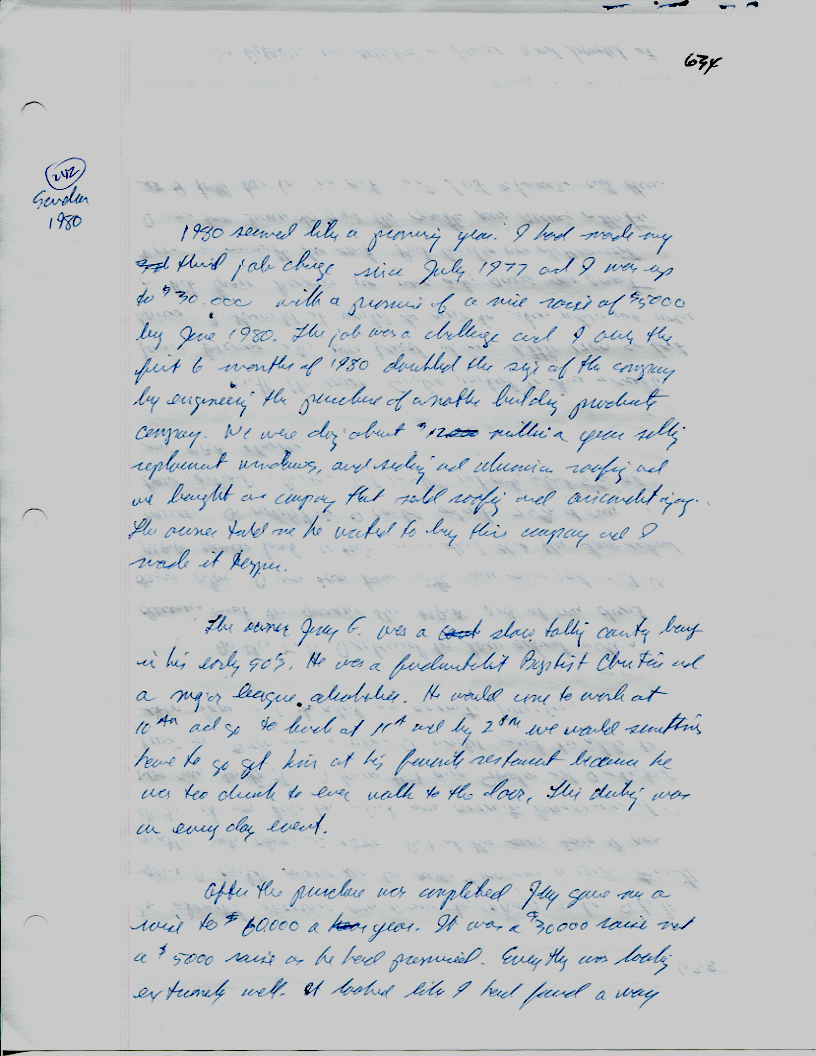 634
242
1980
1980 seemed like a promising year. I had made my
third job change since July 1977 and I was up
to $30,000 with a promise of a nice raise of $5000
by June 1980. The job was a challenge and I over the
first 6 months of 1980 doubled the size of the company
by engineering the purchase of another building products
company. We were doing about $12 million a year selling
replacement windows, and siding and aluminum roofing and
we bought a company that sold roofing and airconditioning.
The owner told me he wanted to buy this company and I
made it happen.
The owner Jerry G. was a slow talking country boy
in his early 50s. He was a fundamentalist Baptist Christian and
a major league alcoholic. He would come to work at
10 AM and go to lunch at 11 AM and by 2 PM we would sometimes
have to go get him at his favorite restaurant because he
was too drunk to even walk to the door. This drinking was
an every day event.
After the purchase was completed Jerry gave me a
raise to $60,000 a year. It was a $30,000 raise not
a $5000 raise as he had promised. Everything was looking
extremely well. It looked like I had found a way